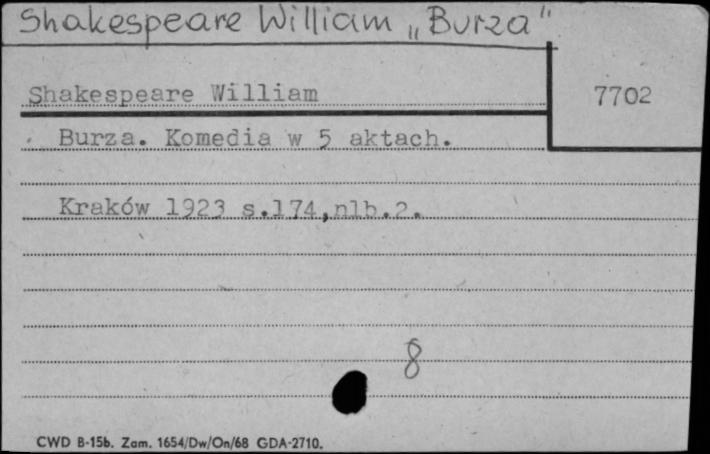 Shakespeare William „Burza"
Shakespeare William
7702
Burza. Komedia w 5 aktach.
Kraków 1923 s.174,nlb.2.
8
CWD B-15b. Zam. 1654/Dw/On/68 GDA-2710.